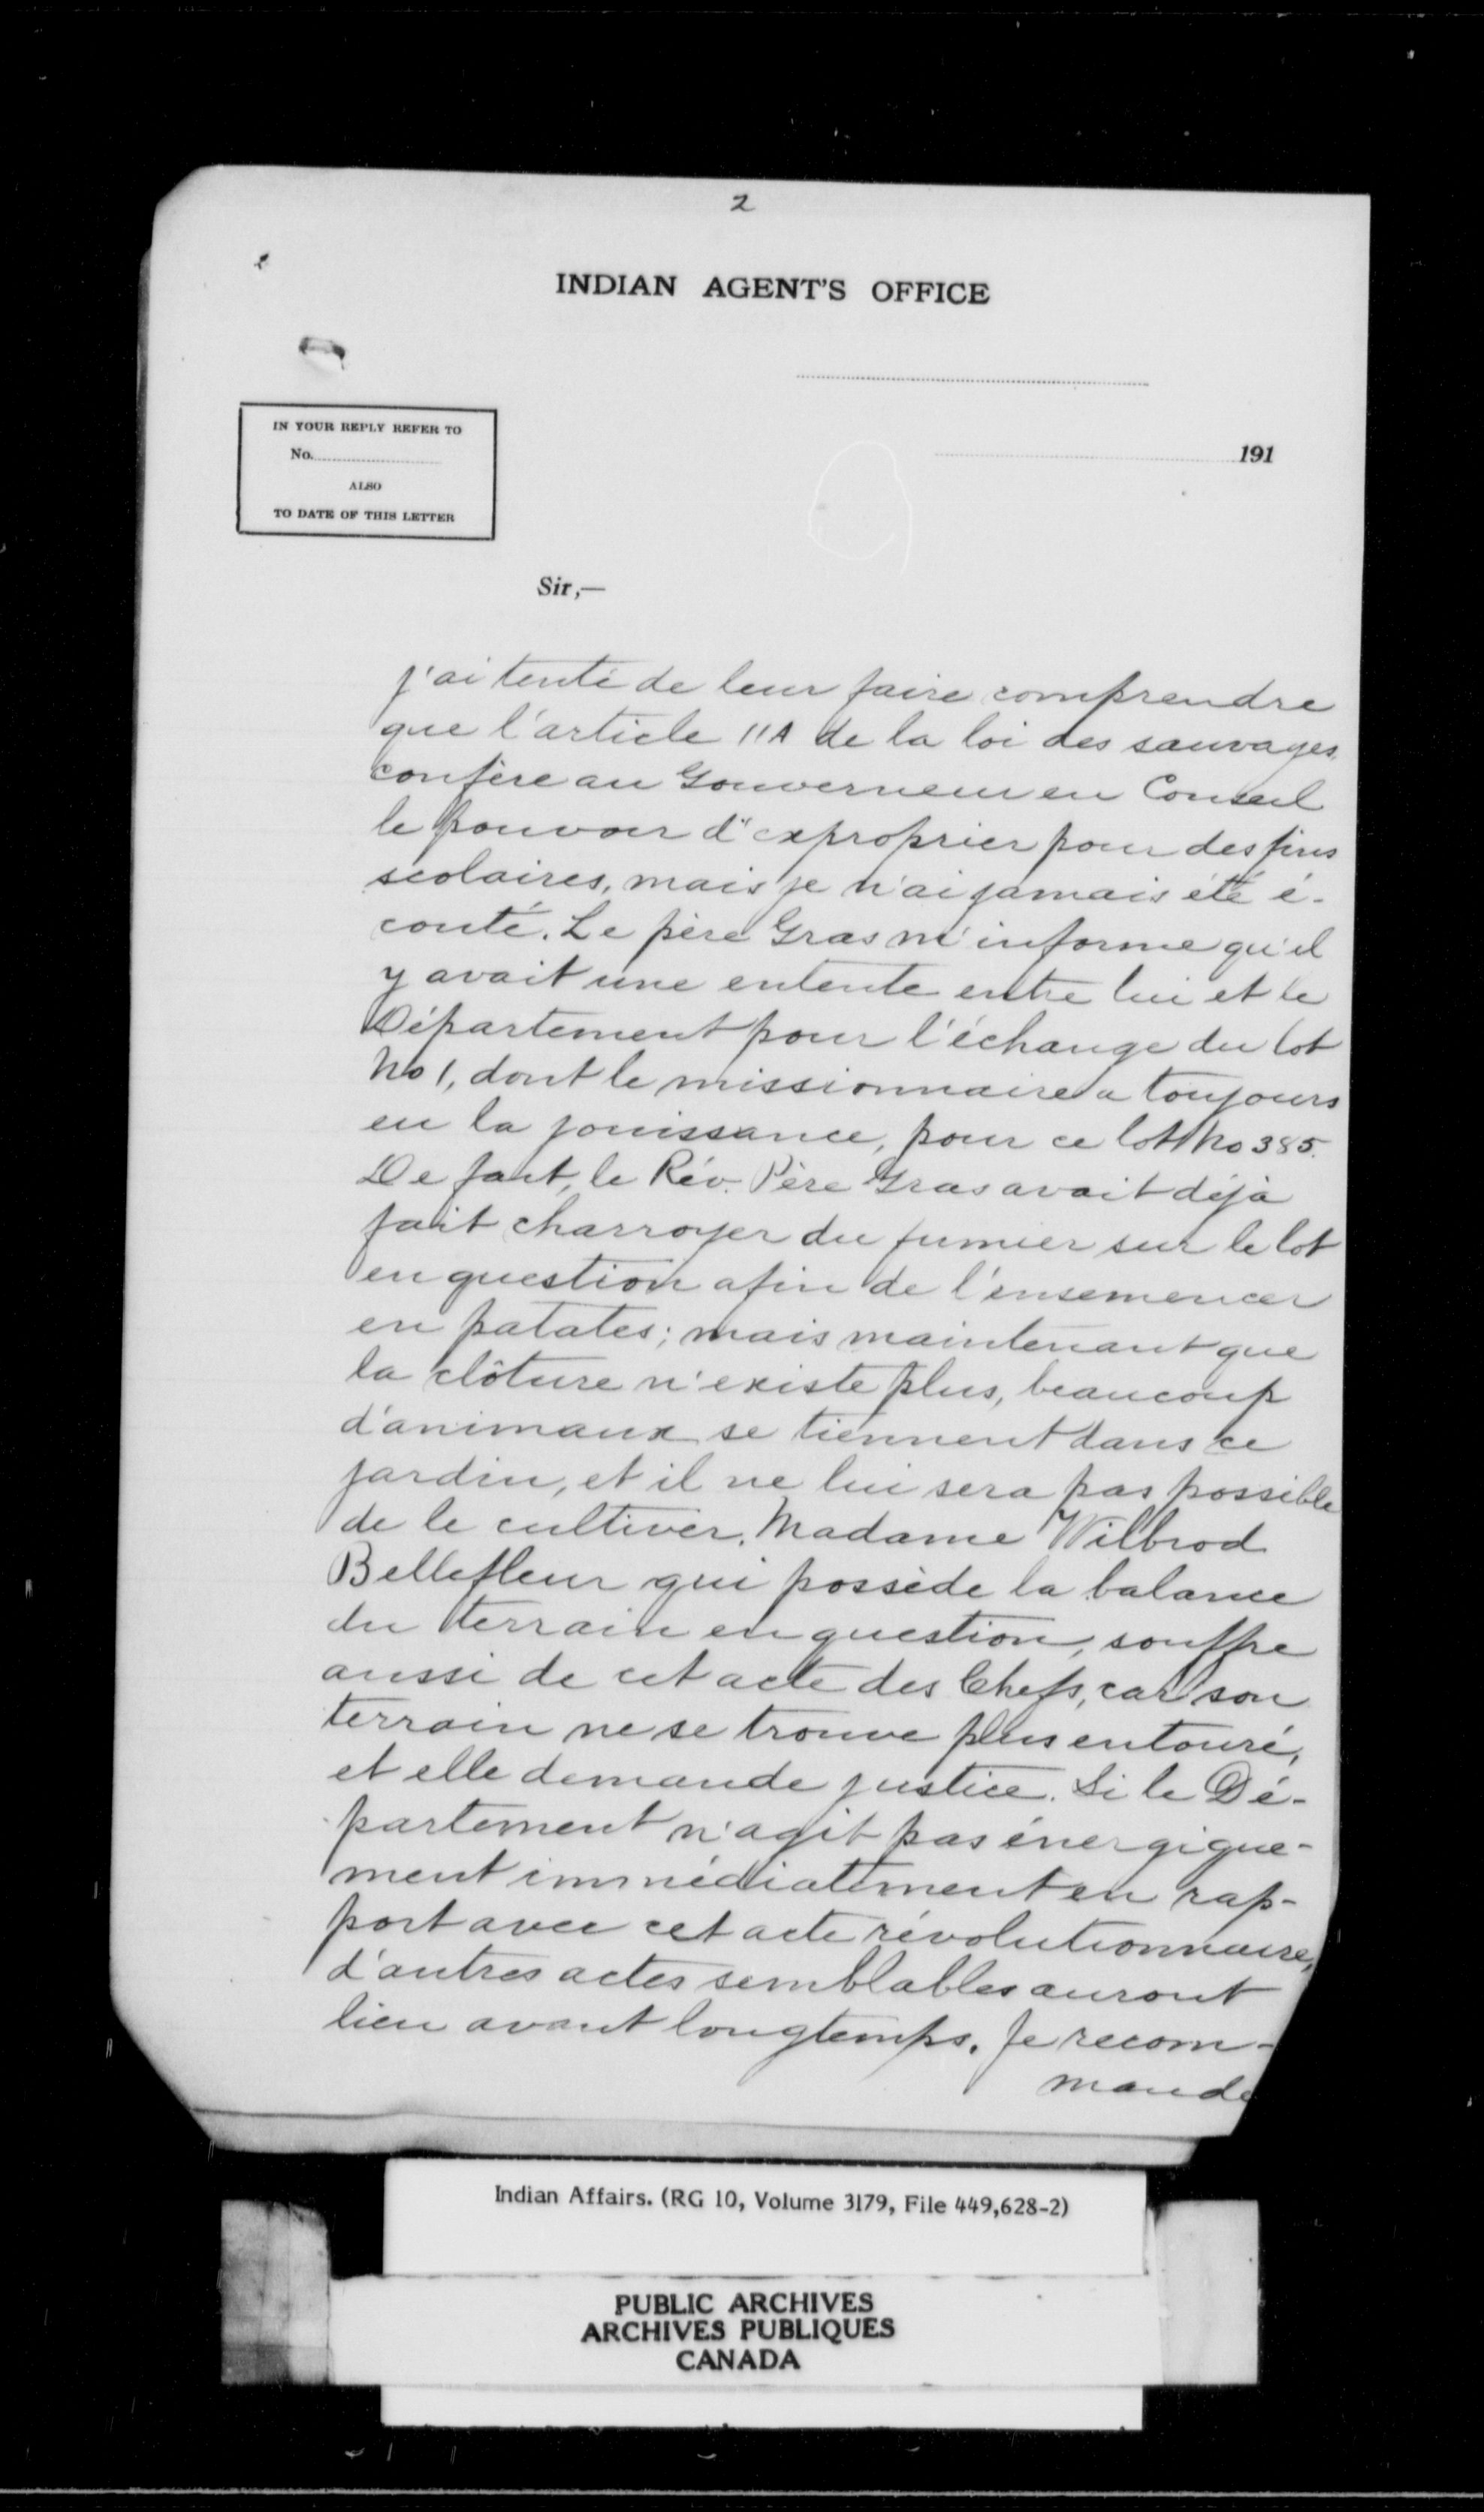 2
INDIAN AGENT'S OFFICE
IN YOUR REPLY REFER TO
No.
ALSO
TO DATE OF THIS LETTER
191
Sir,—
j'ai tenté de leur faire comprendre
que l'article 11A de la loi des sauvages
confère au Gouverneur en Conseil
le pouvoir d'exproprier pour des fins
scolaires, mais je n'ai jamais été é-
couté. Le père Gras m'informe qu'il
y avait une entente entre lui et le
Département pour l'échange du lot
No 1, dont le missionnaire a toujours
eu la jouissance, pour ce lot No 385.
De fait, le Rév. Père Gras avait déjà
fait charroyer du fumier sur le lot
en question afin de l'ensemencer
en patates; mais maintenant que
la clôture n'existe plus, beaucoup
d'animaux se tiennent dans ce
jardin, et il ne lui sera pas possible
de le cultiver. Madame Wilbrod
Bellefleur qui possède la balance
du terrain en question, souffre
aussi de cet acte des Chefs, car son
terrain ne se trouve plus entouré,
et elle demande justice. Si le Dé-
partement n'agit pas énergique-
ment immédiatement en rap-
port avec cet acte révolutionnaire,
d'autres actes semblables auront
lieu avant longtemps. Je recom-
mande
Indian Affairs. (RG 10, Volume 3179, File 449,628-2)
PUBLIC ARCHIVES
ARCHIVES PUBLIQUES
CANADA